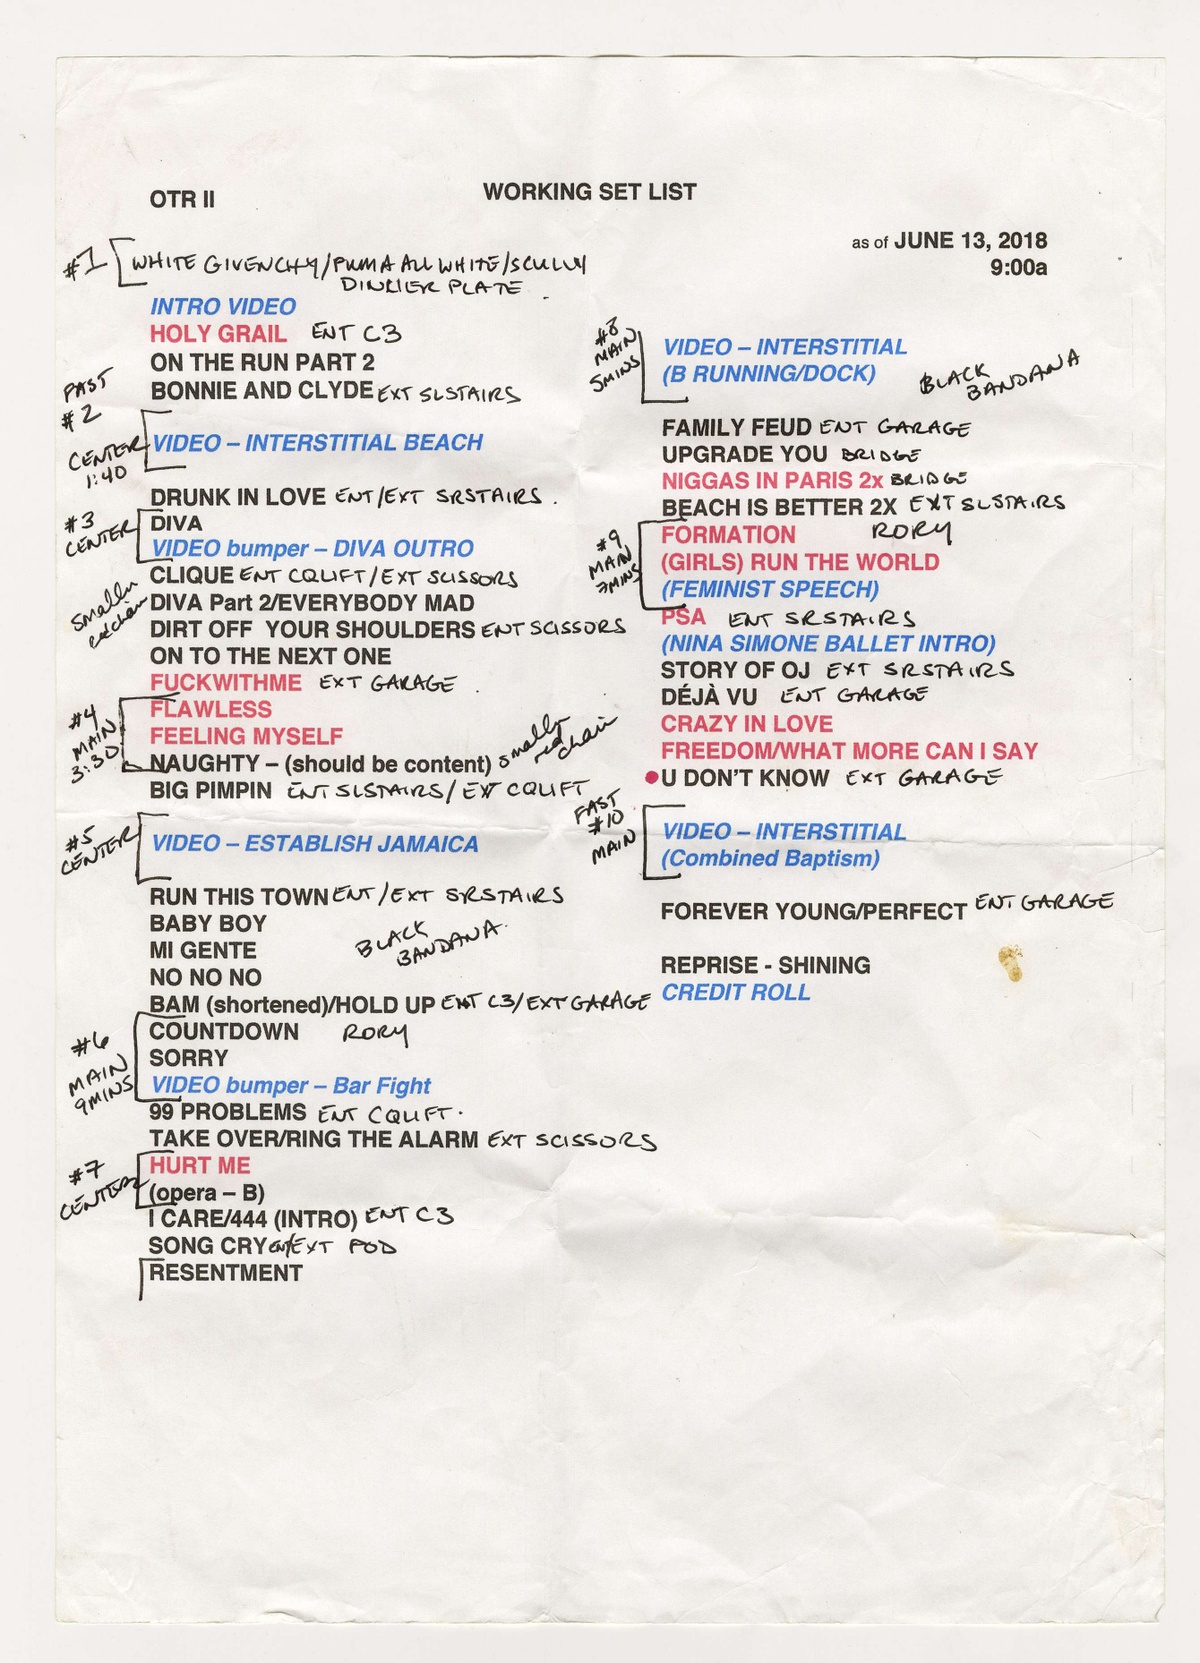 OTR II
WORKING SET LIST
as of JUNE 13, 2018
9:00a
#1 WHITE GIVENCHY/PUMA ALL WHITE/SCULLY
DINNER PLATE
INTRO VIDEO
HOLY GRAIL ENT C3
ON THE RUN PART 2
BONNIE AND CLYDE EXT SLSTAIRS
FAST
#2
CENTER
1:40
VIDEO – INTERSTITIAL BEACH
DRUNK IN LOVE ENT/EXT SRSTAIRS.
#3
CENTER
DIVA
VIDEO bumper – DIVA OUTRO
CLIQUE ENT CQLIFT/EXT SCISSORS
smaller
DIVA Part 2/EVERYBODY MAD
DIRT OFF YOUR SHOULDERS ENT SCISSORS
ON TO THE NEXT ONE
FUCKWITHME EXT GARAGE
#4
MAIN
3:30
FLAWLESS
FEELING MYSELF
NAUGHTY – (should be content)
red chain
BIG PIMPIN ENT SLSTAIRS/EXT CQLIFT
#5
CENTER
VIDEO – ESTABLISH JAMAICA
RUN THIS TOWN ENT/EXT SRSTAIRS
BABY BOY
MI GENTE
BLACK
BANDANA
NO NO NO
BAM (shortened)/HOLD UP ENT C3/EXT GARAGE
#6
MAIN
9MINS
COUNTDOWN RORY
SORRY
VIDEO bumper – Bar Fight
99 PROBLEMS ENT CQLIFT.
TAKE OVER/RING THE ALARM EXT SCISSORS
#7
CENTER
HURT ME
(opera – B)
I CARE/444 (INTRO) ENT C3
SONG CRY EXT POD
RESENTMENT
#8
MAIN
5MINS
VIDEO – INTERSTITIAL
(B RUNNING/DOCK)
BLACK
BANDANA
FAMILY FEUD ENT GARAGE
UPGRADE YOU BRIDGE
NIGGAS IN PARIS 2x BRIDGE
BEACH IS BETTER 2X EXT SLSTAIRS
#9
MAIN
7MINS
FORMATION RORY
(GIRLS) RUN THE WORLD
(FEMINIST SPEECH)
PSA ENT SRSTAIRS
(NINA SIMONE BALLET INTRO)
STORY OF OJ EXT SRSTAIRS
DÉJÀ VU ENT GARAGE
CRAZY IN LOVE
FREEDOM/WHAT MORE CAN I SAY
U DON'T KNOW EXT GARAGE
FAST
#10
MAIN
VIDEO – INTERSTITIAL
(Combined Baptism)
FOREVER YOUNG/PERFECT ENT GARAGE
REPRISE - SHINING
CREDIT ROLL